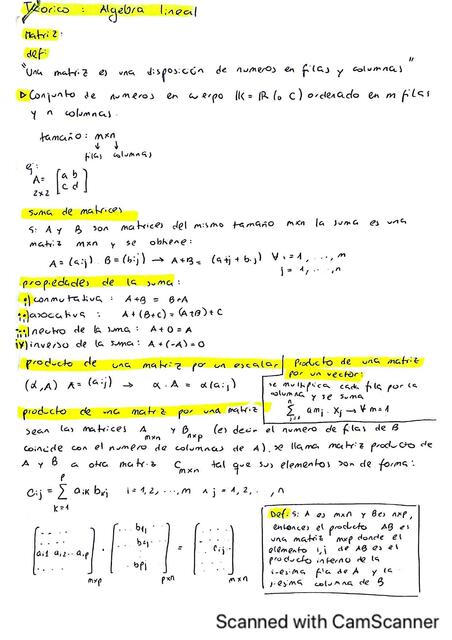 Teorico : Algebra lineal
Matriz:
def:
"Una matriz es una disposicion de numeros en filas y columnas"
▷ Conjunto de numeros en cuerpo lK = lR (o C) ordenado en m filas
y n columnas.
tamaño : m×n
↓ ↓
filas columnas
ej:
A = [a b
2x2 c d]
suma de matrices
Si A y B son matrices del mismo tamaño mxn la suma es una
matriz mxn y se obtiene:
A = (aij) B = (bij) → A+B = (aij + bij) ∀ i = 1, ..., m
j = 1, ..., n
propiedades de la suma:
i) conmutativa : A+B = B+A
ii) asociativa : A+(B+C) = (A+B)+C
iii) neutro de la suma: A+0 = A
iv) inverso de la suma: A+(-A) = 0
producto de una matriz por un escalar
(α, A) A = (aij) → α·A = α(aij)
Producto de una matriz
por un vector:
se multiplica cada fila por la
columna y se suma
n
Σ amj · xj → ∀ m=1
j=1
producto de una matriz por una matriz
sean las matrices A mxn y B nxp (es decir el numero de filas de B
coincide con el numero de columnas de A). se llama matriz producto de
A y B a otra matriz C mxn tal que sus elementos son de forma:
p
cij = Σ aik bkj i = 1, 2, ..., m ∧ j = 1, 2, .., n
k=1
[ai1 ai2 ... aip] mxp · [b1j b2j bpj] pxn = [cij] mxn
Def: Si A es mxn y B es nxp,
entonces el producto AB es
una matriz mxp donde el
elemento i,j de AB es el
producto interno de la
iesima fila de A y la
jesima columna de B
Scanned with CamScanner